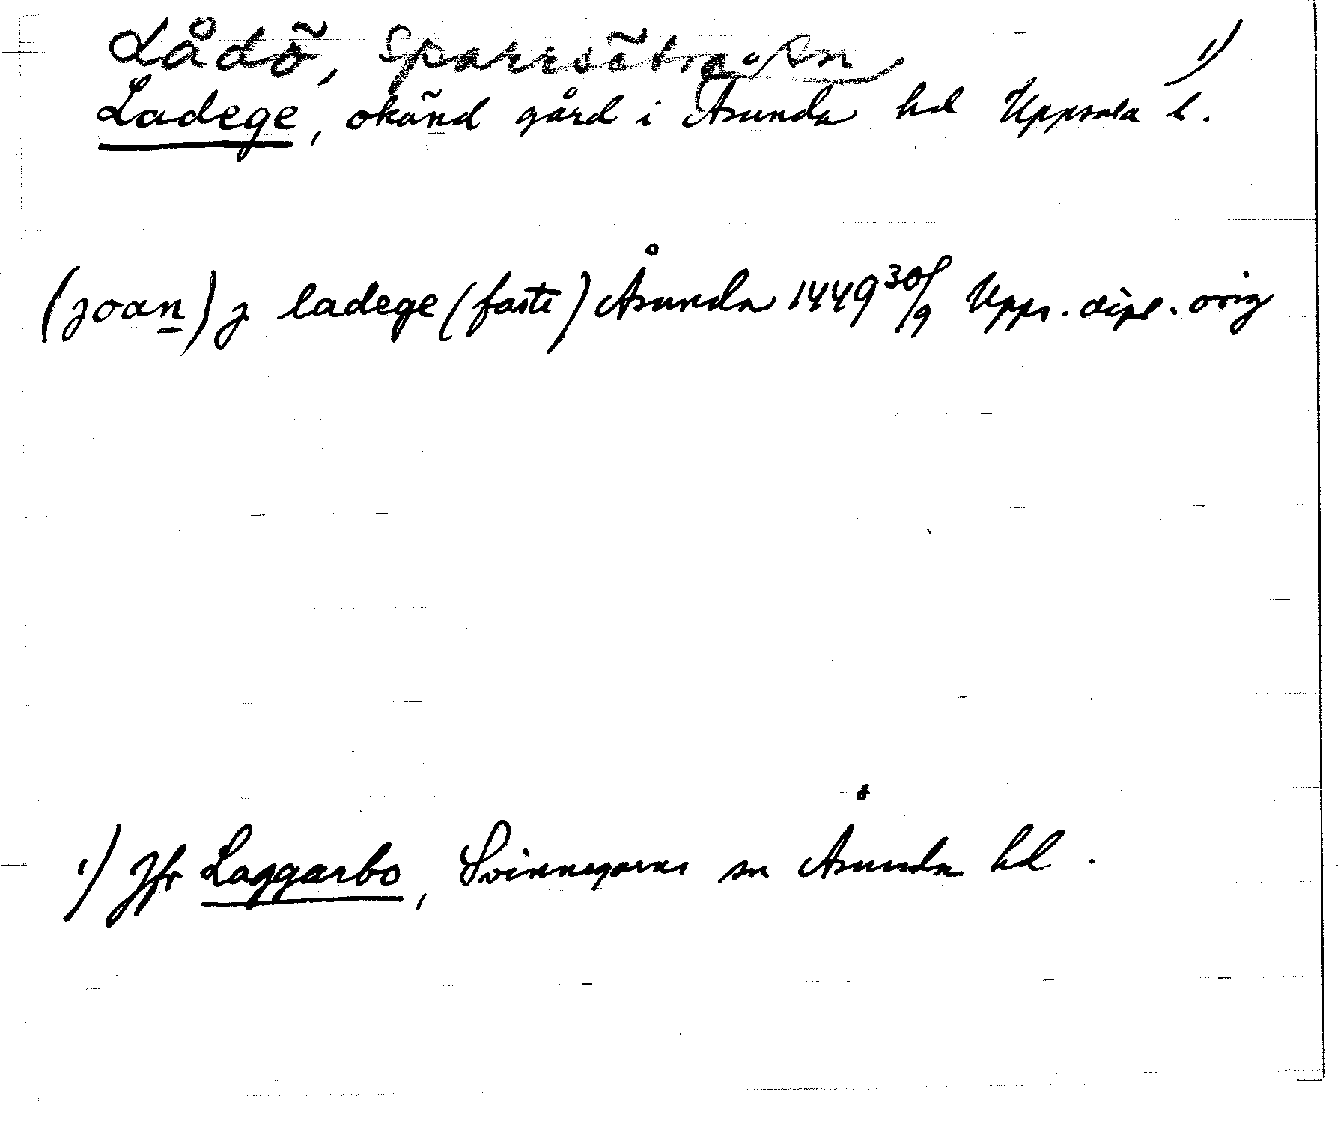 Lådö, Sparrsätra sn
Ladege, okänd gård i Åsunda hd Uppsala l. 1)
(joan) j ladege (faste) Åsunda 1449 30/9 Upps. dipl. orig
1) Jfr Laggarbo, Svinnegarns sn Åsunda hd.